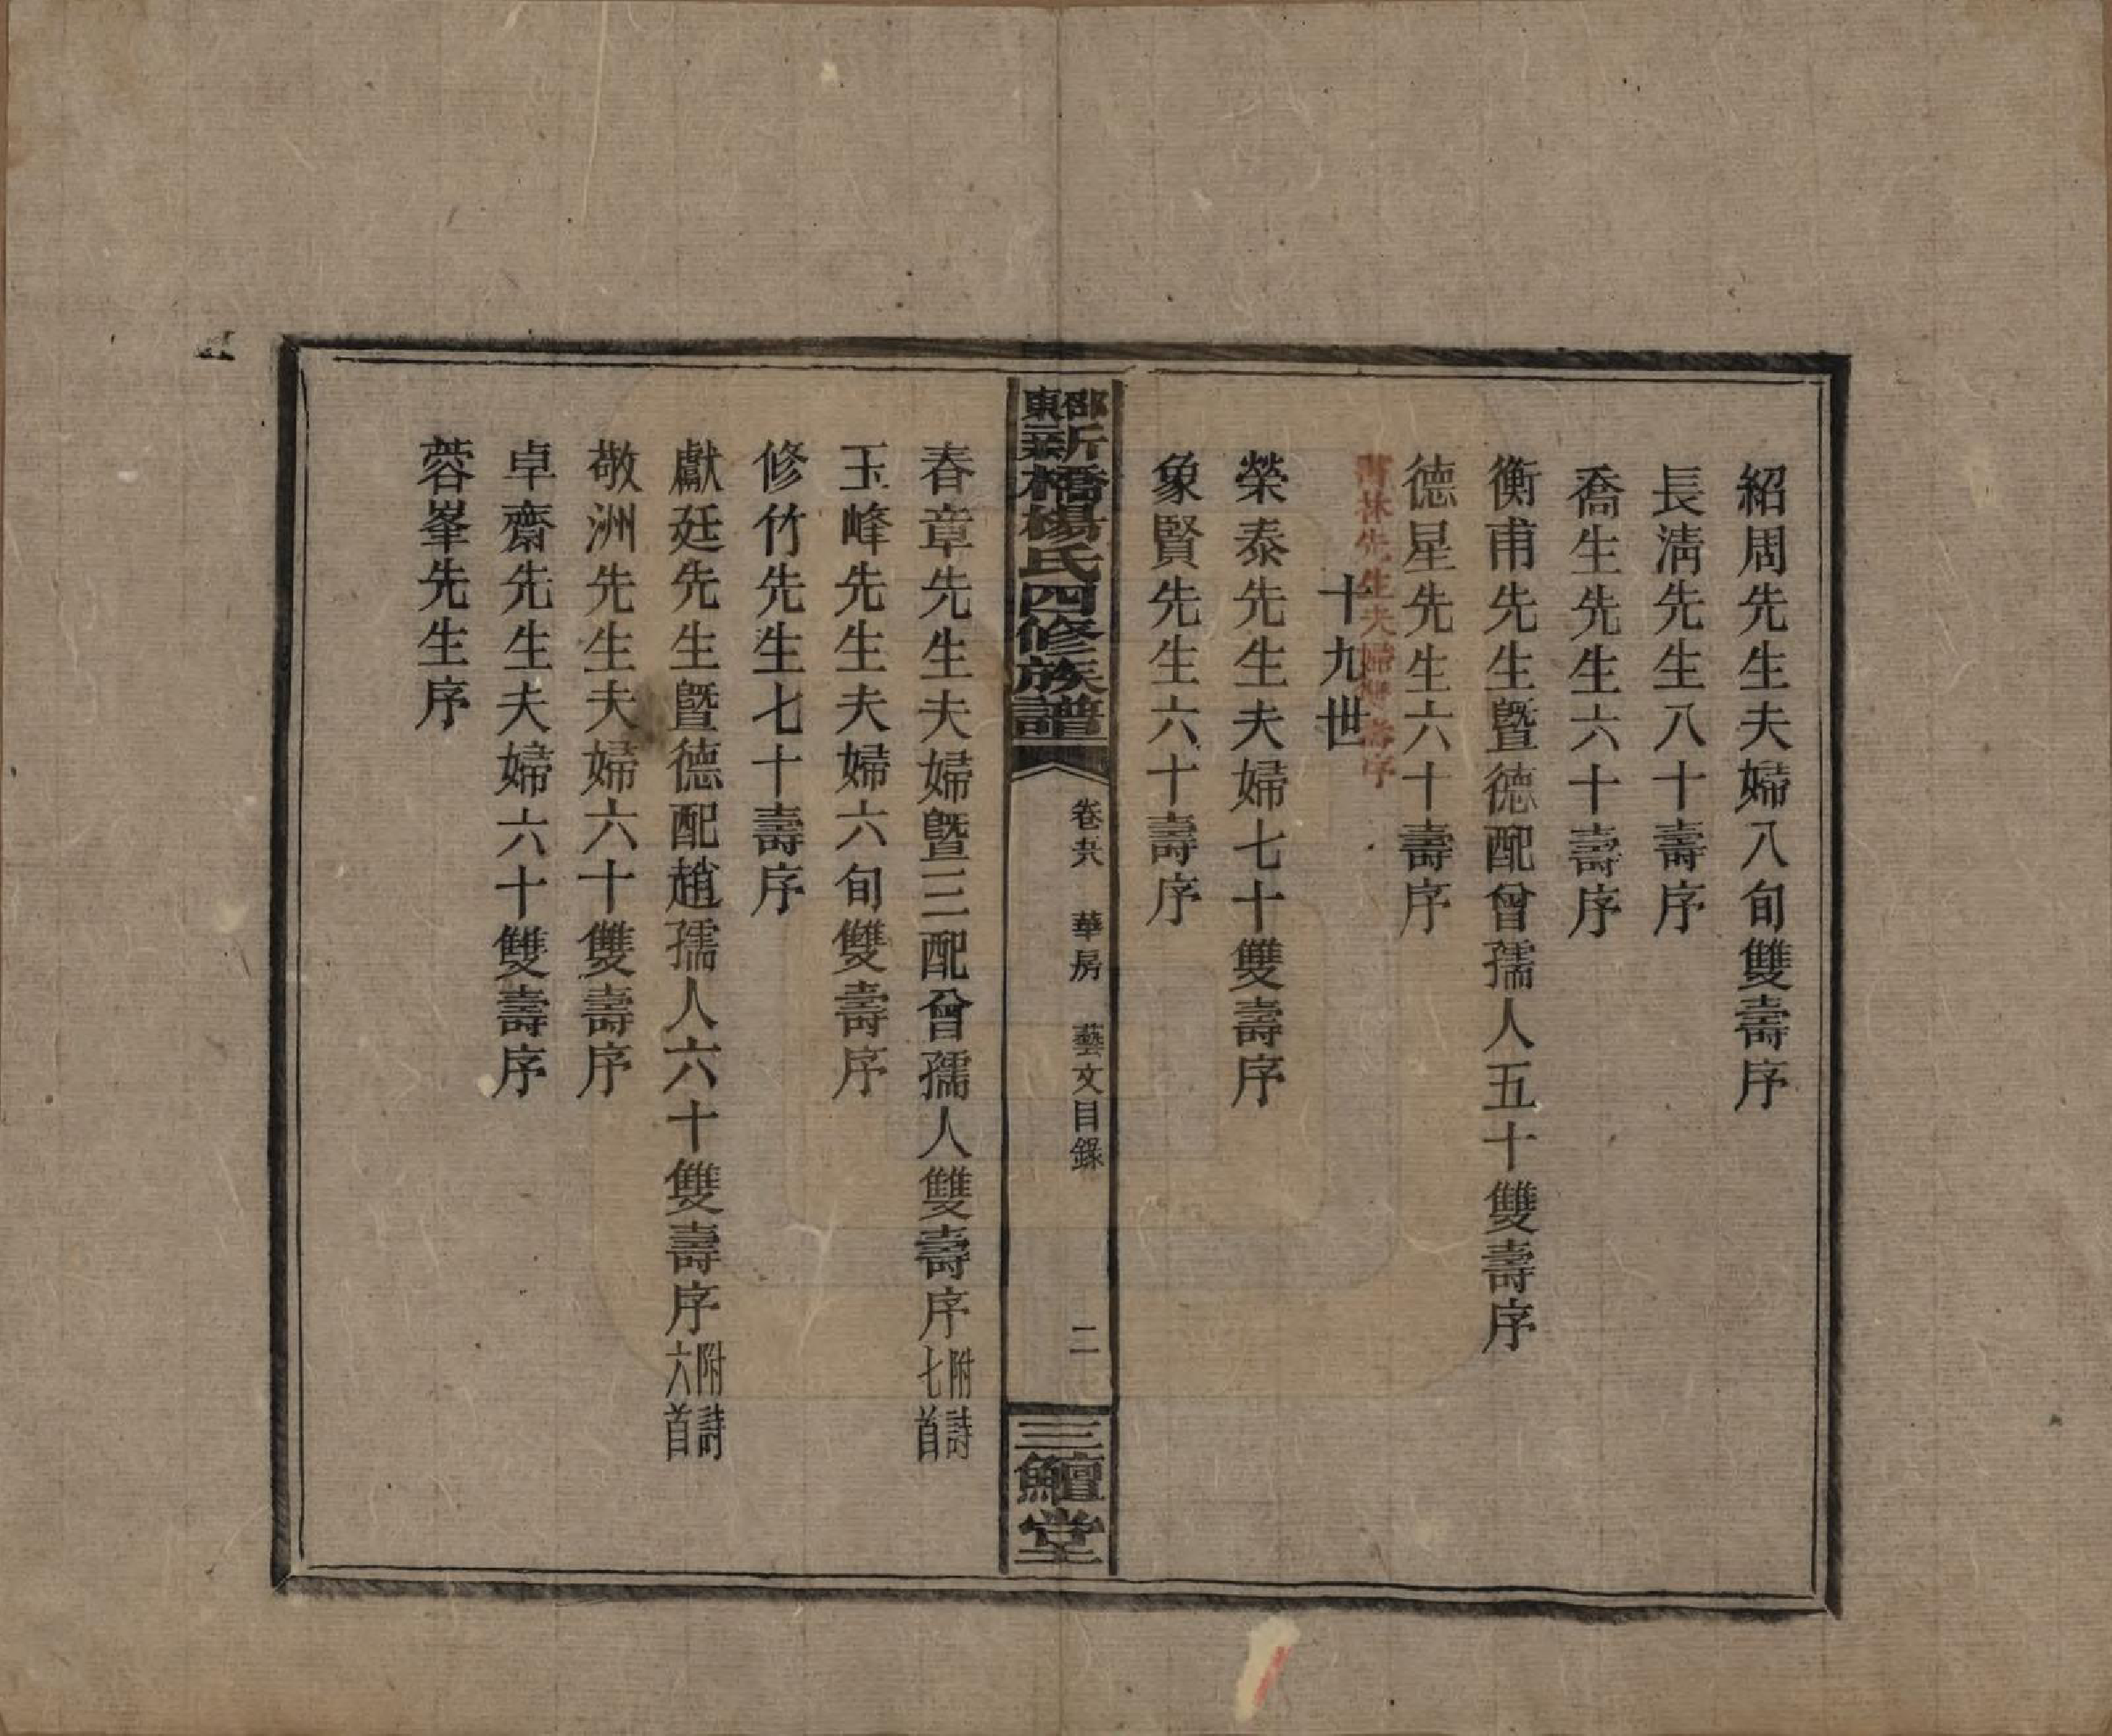 紹周先生夫婦八旬雙壽序
長淸先生八十壽序
喬生先生六十壽序
衡甫先生曁德配曾孺人五十雙壽序
德星先生六十壽序
林先生夫婦雙壽序
十九世
榮泰先生夫婦七十雙壽序
象賢先生六十壽序
邵東新橋楊氏四修族譜
卷 華房 藝文目錄 二
三鱣堂
春章先生夫婦曁三配曾孺人雙壽序附詩七首
玉峰先生夫婦六旬雙壽序
修竹先生七十壽序
獻廷先生曁德配趙孺人六十雙壽序附詩六首
敬洲先生夫婦六十雙壽序
卓齋先生夫婦六十雙壽序
蓉峯先生序